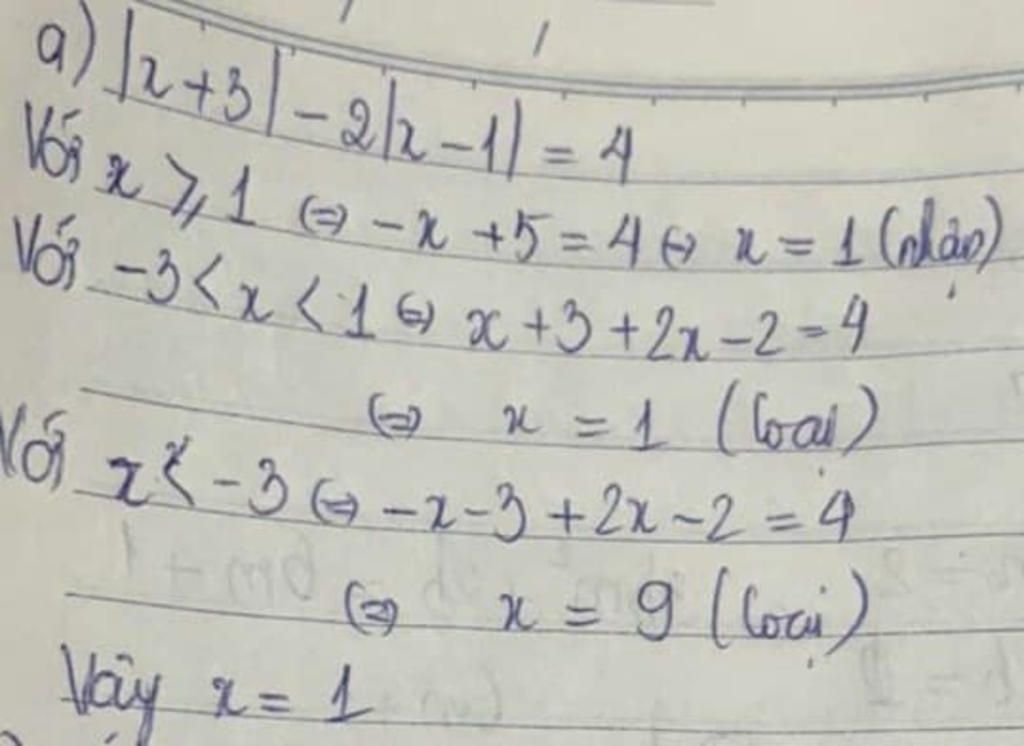 a) |x+3| - 2|x-1| = 4
Với x ⩾ 1 ⇔ -x + 5 = 4 ⇔ x = 1 (nhận)
Với -3 < x < 1 ⇔ x + 3 + 2x - 2 = 4
⇔ x = 1 (loại)
Với x < -3 ⇔ -x - 3 + 2x - 2 = 4
⇔ x = 9 (loại)
Vậy x = 1